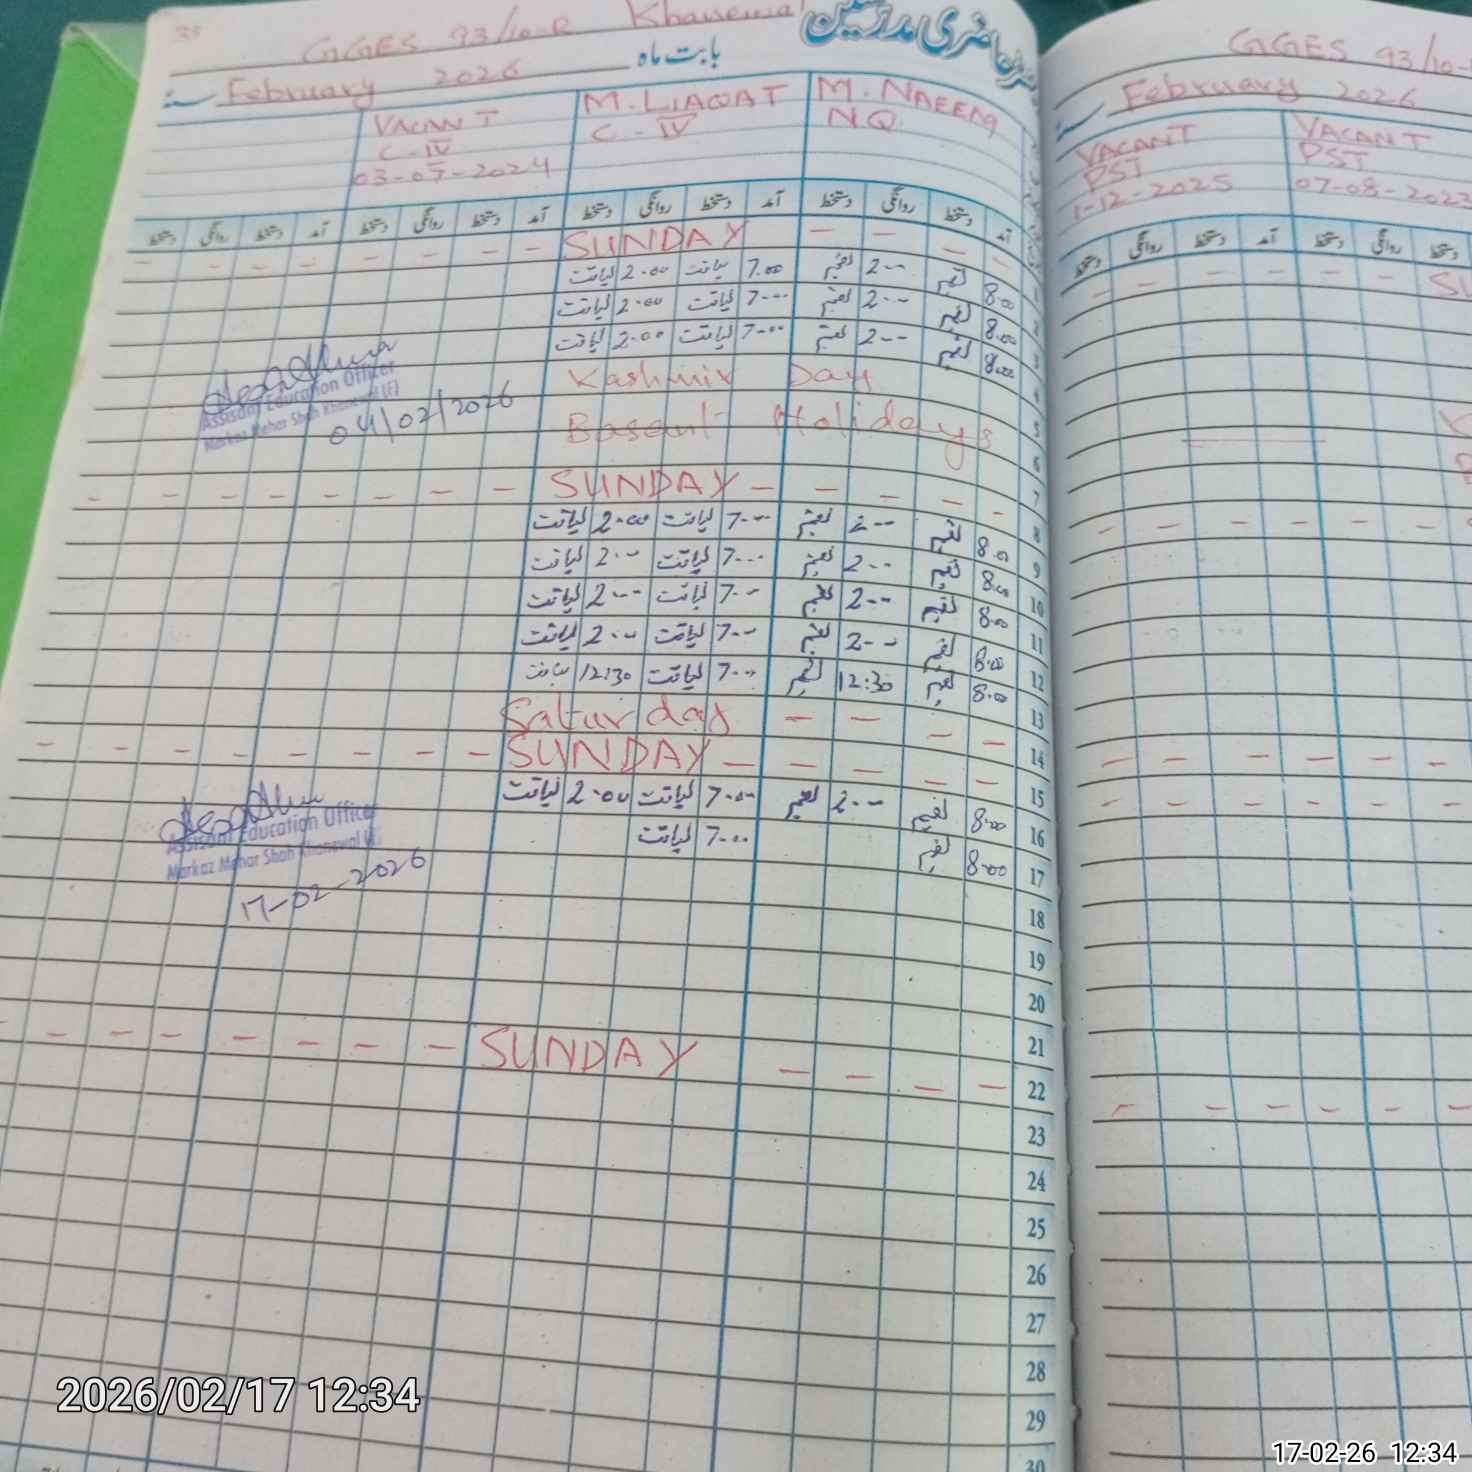 35
GGES 93/10-R Khanewal
رجسٹر حاضری مدرسین
بابت ماہ
February 2026
سنہ
M. NAEEM
NQ.
M. LIAQAT
C-IV
VACANT
C-IV
03-07-2024
آمد دستخط روانگی دستخط آمد دستخط روانگی دستخط آمد دستخط روانگی دستخط آمد دستخط روانگی دستخط
1 - - - - SUNDAY - - - - - - - -
2 8.00 نعیم 2-- نعیم 7.00 لیاقت 2.00 لیاقت
3 8.00 نعیم 2-- نعیم 7--- لیاقت 2.00 لیاقت
4 8.00 نعیم 2-- نعیم 7-.. لیاقت 2.00 لیاقت
5 Kashmir Day
6 Basant Holidays
7
8 - - - - SUNDAY - - - - - - - -
9 8.0 نعیم 2-- نعیم 7--- لیاقت 2.00 لیاقت
10 8.00 نعیم 2-- نعیم 7--- لیاقت 2.-- لیاقت
11 8.00 نعیم 2-- نعیم 7.-- لیاقت 2--- لیاقت
12 8.00 نعیم 2-- نعیم 7.-- لیاقت 2.-- لیاقت
13 8.00 نعیم 12:30 نعیم 7--- لیاقت 12:30 لیاقت
14 - - - - Saturday
15 - - - - SUNDAY - - - - - - - -
16 8.00 نعیم 2.-- نعیم 7.00 لیاقت 2.00 لیاقت
17 8.00 نعیم 7-.. لیاقت
18
19
20
21
22 - - - - SUNDAY - - - - - - - -
23
24
25
26
27
28
29
30
Assisant Education Officer
Markaz Mehar Shah Khanewal (F)
04/02/2026
Assisant Education Officer
Markaz Mehar Shah Khanewal (F)
17-02-2026
GGES 93/10-
February 2026
سنہ
VACANT
PST
07-08-2023
VACANT
PST
1-12-2025
دستخط روانگی دستخط آمد دستخط روانگی دستخط
SU
2026/02/17 12:34
17-02-26 12:34